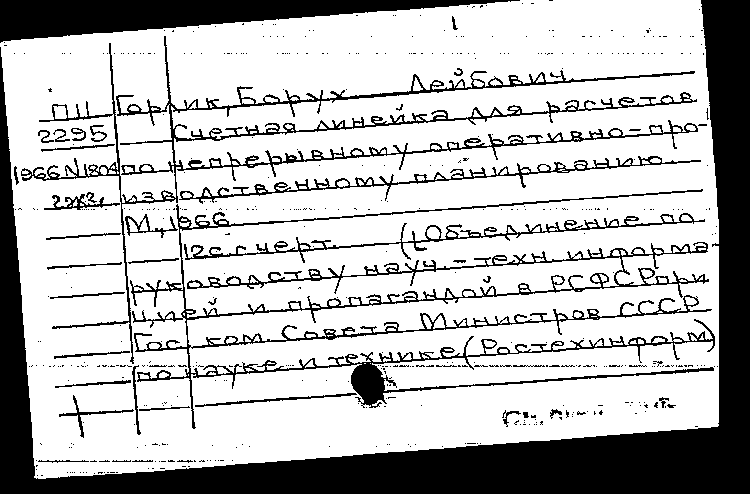 1
ПII Горлик, Борух Лейбович.
2295 Счетная линейка для расчетов
1966 N1804 по непрерывному оперативно-про-
2экз. изводственному планированию.
М., 1966
12с. с черт. ([Объединение по
руководству науч.-техн. информа-
цией и пропагандой в РСФСР при
Гос. ком. Совета Министров СССР
по науке и технике (Ростехинформ)
См.